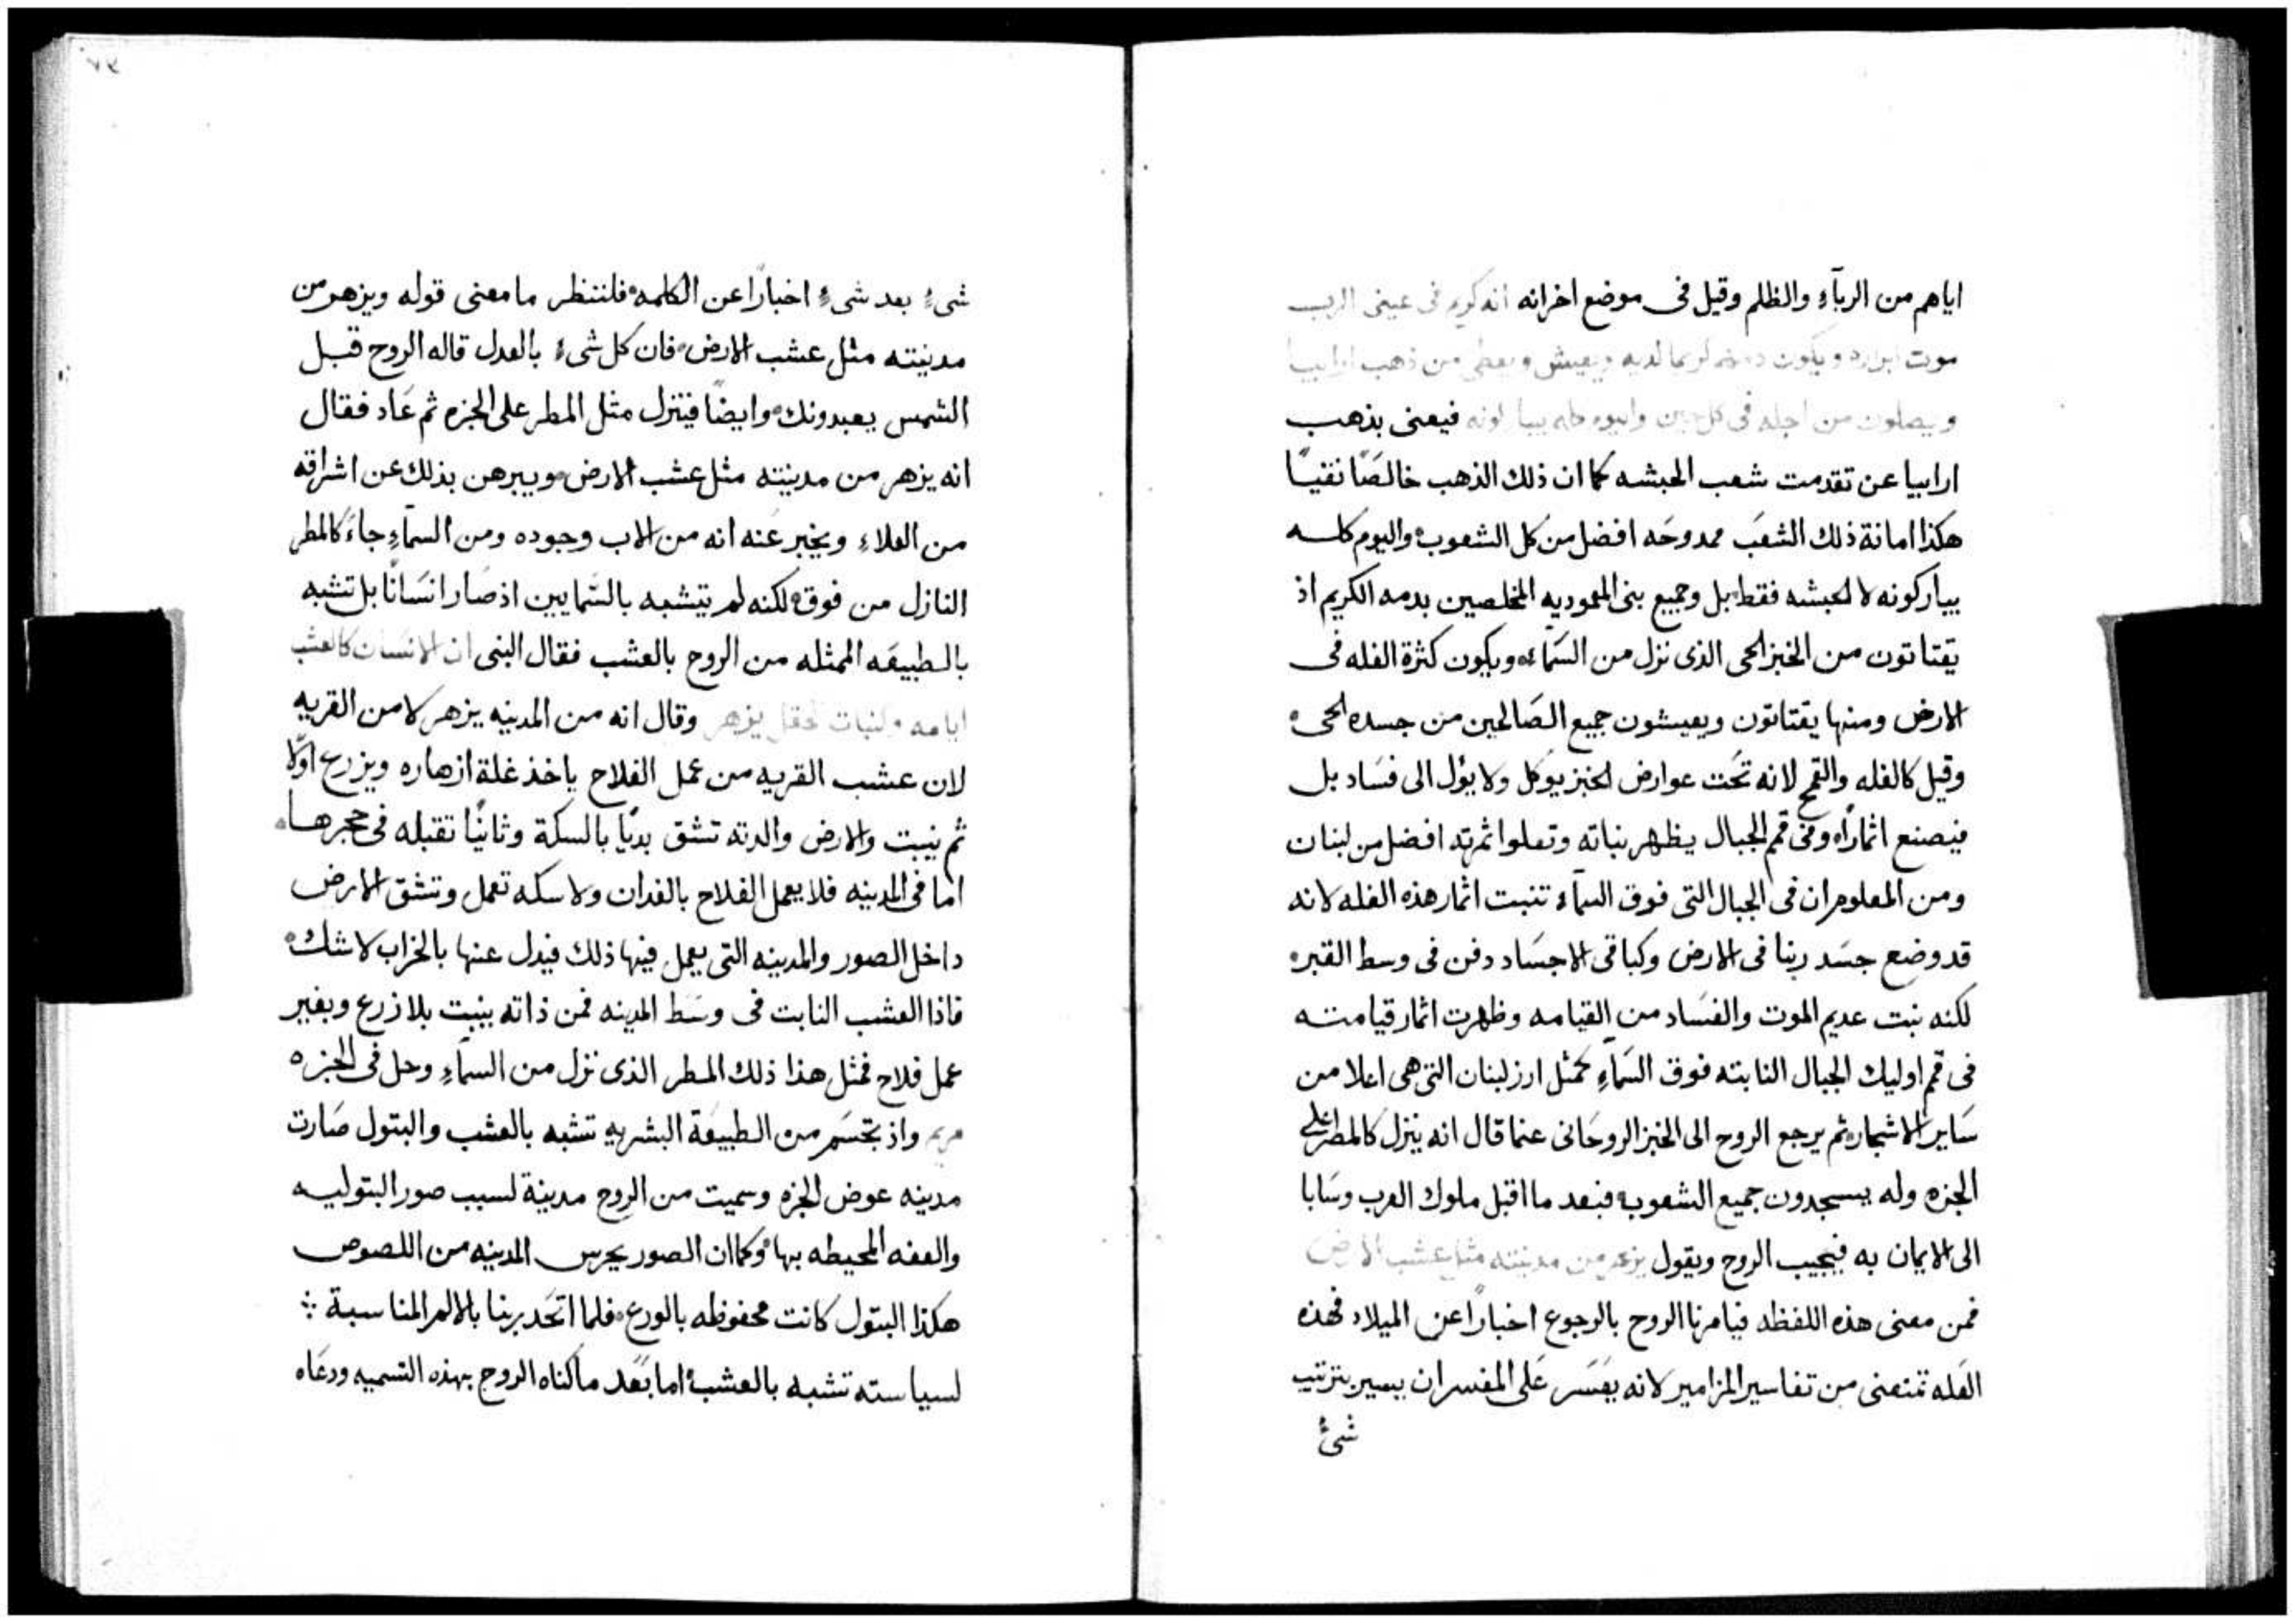 اياهم من الريآءِ والظلم وقيل فى موضع اخر انه انه كريم فى عينى الرب
موت ابراره ويكون دمهم كريما لديه ويعيش ويعطى من ذهب ارابيا
ويصلون من اجله فى كل حين واليوم كله يباركونه فيعنى بذهب
ارابيا عن تقدمت شعب الحبشه كما ان ذلك الذهب خالصًا نقيًا
هكذا امانة ذلك الشعب ممدوحه افضل من كل الشعوب واليوم كله
يباركونه لا الحبشه فقط بل وجميع بنى المعموديه المخلصين بدمه الكريم اذ
يقتاتون من الخبز الحى الذى نزل من السمآء ويكون كثرة الغله فى
الارض ومنها يقتاتون ويعيشون جميع الصالحين من جسده الحى
وقيل كالغله والقمح لانه تحت عوارض الخبز يوكل ولا يؤل الى فساد بل
فيصنع اثمارًا وفى قمم الجبال يظهر نباته وتعلوا ثمرته افضل من لبنان
ومن المعلوم ان فى الجبال التى فوق السمآء تنبت اثمار هذه الغله لانه
قد وضع جسد ربنا فى الارض وكباقى الاجساد دفن فى وسط القبر
لكنه نبت عديم الموت والفساد من القيامه وظهرت اثمار قيامته
فى قمم اوليك الجبال النابته فوق السمآءِ كمثل ارز لبنان التى هى اعلا من
ساير الاشجار ثم يرجع الروح الى الخبز الروحانى عنما قال انه ينزل كالمطر على
الجزه وله يسجدون جميع الشعوب فبعد ما اقبل ملوك العرب وسابا
الى الايمان به فيجيب الروح ويقول يزهر من مدينته مثل عشب الارض
فمن معنى هذه اللفظه فيامرنا الروح بالرجوع اخبارًا عن الميلاد فهذه
الغله تمنعنى من تفاسير المزامير لانه يفسر على المفسر ان يسير بترتيب
شىءٌ
٧٣
شىءٍ بعد شىءٍ اخبارًا عن الكلمه فلننظر ما معنى قوله ويزهر من
مدينته مثل عشب الارض فان كل شىء بالعدل قاله الروح قبل
الشمس يعبدونك وايضًا فيتنزل مثل المطر على الجزه ثم عاد فقال
انه يزهر من مدينته مثل عشب الارض ويبرهن بذلك عن اشراقه
من العلاءِ ويخبر عنه انه من الاب وجوده ومن السمآءِ جاءَ كالمطر
النازل من فوق لكنه لم يتشبه بالسمايين اذ صار انسانًا بل تشبه
بالطبيعه الممثله من الروح بالعشب فقال النبى ان الانسان كالعشب
ايامه وكنبات الحقل يزهر وقال انه من المدينه يزهر لا من القريه
لان عشب القريه من عمل الفلاح ياخذ غلة ازهاره ويزرع اوّلا
ثم ينبت والارض والدته تشق بديًا بالسكة وثانيًا تقبله فى حجرها
اما فى المدينه فلا يعمل الفلاح بالفدان ولا سكه تعمل وتشق الارض
داخل الصور والمدينه التى يعمل فيها ذلك فيدل عنها بالخراب لا شك
فاذا العشب النابت فى وسط المدينه فمن ذاته ينبت بلا زرع وبغير
عمل فلاح فمثل هذا ذلك المطر الذى نزل من السمآءِ وحل فى الجزه
مريم واذ تجسم من الطبيعة البشريه تشبه بالعشب والبتول صارت
مدينه عوض الجزه وسميت من الروح مدينة لسبب صور البتوليه
والعفه المحيطه بها وكما ان الصور يحرس المدينه من اللصوص
هكذا البتول كانت محفوظه بالورع فلما اتحد ربنا بالالم المناسبة
لسياسته تشبه بالعشب اما بعد ما كناه الروح بهذه التسميه ودعاه